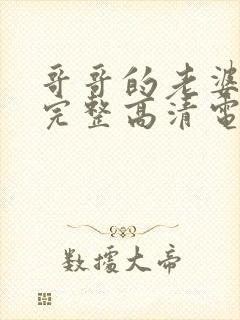 哥哥的老婆
完整高清電
数據大帝